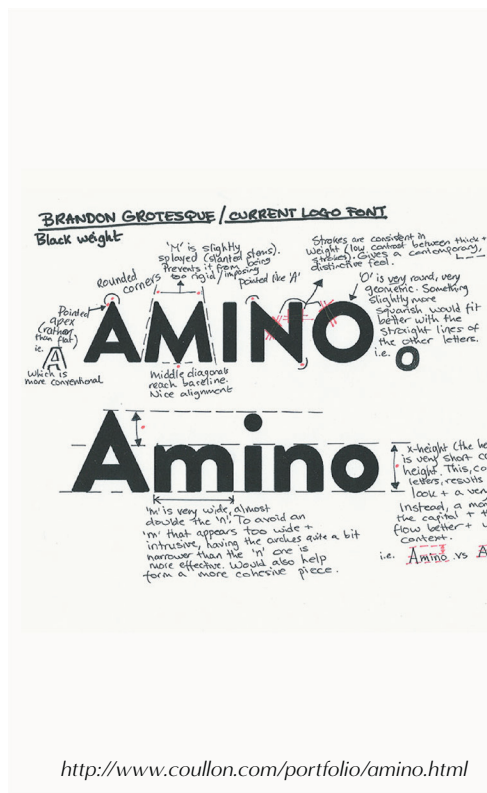 BRANDON GROTESQUE / CURRENT LOGO FONT
Black weight
'M' is slightly
splayed (slanted stems).
Prevents it from being
too rigid / imposing
Rounded
corners
Pointed like 'A'
Strokes are consistent in
weight (low contrast between thick +
strokes). Gives a contemporary,
distinctive feel.
'O' is very round, very
geometric. Something
slightly more
squarish would fit
better with the
straight lines of
the other letters.
i.e. o
Pointed
apex
(rather
than flat)
ie. A
which is
more conventional
AMINO.
Middle diagonals
reach baseline.
Nice alignment
Amino
x-height (the
is very short
height. This,
letters, results
look + a
Instead, a
the capital +
flow better +
context.
i.e. Amino vs A
'm' is very wide, almost
double the 'n'. To avoid an
'm' that appears too wide +
intrusive, having the arches quite a bit
narrower than the 'n' one is
more effective. Would also help
form a more cohesive piece.
http://www.coullon.com/portfolio/amino.html